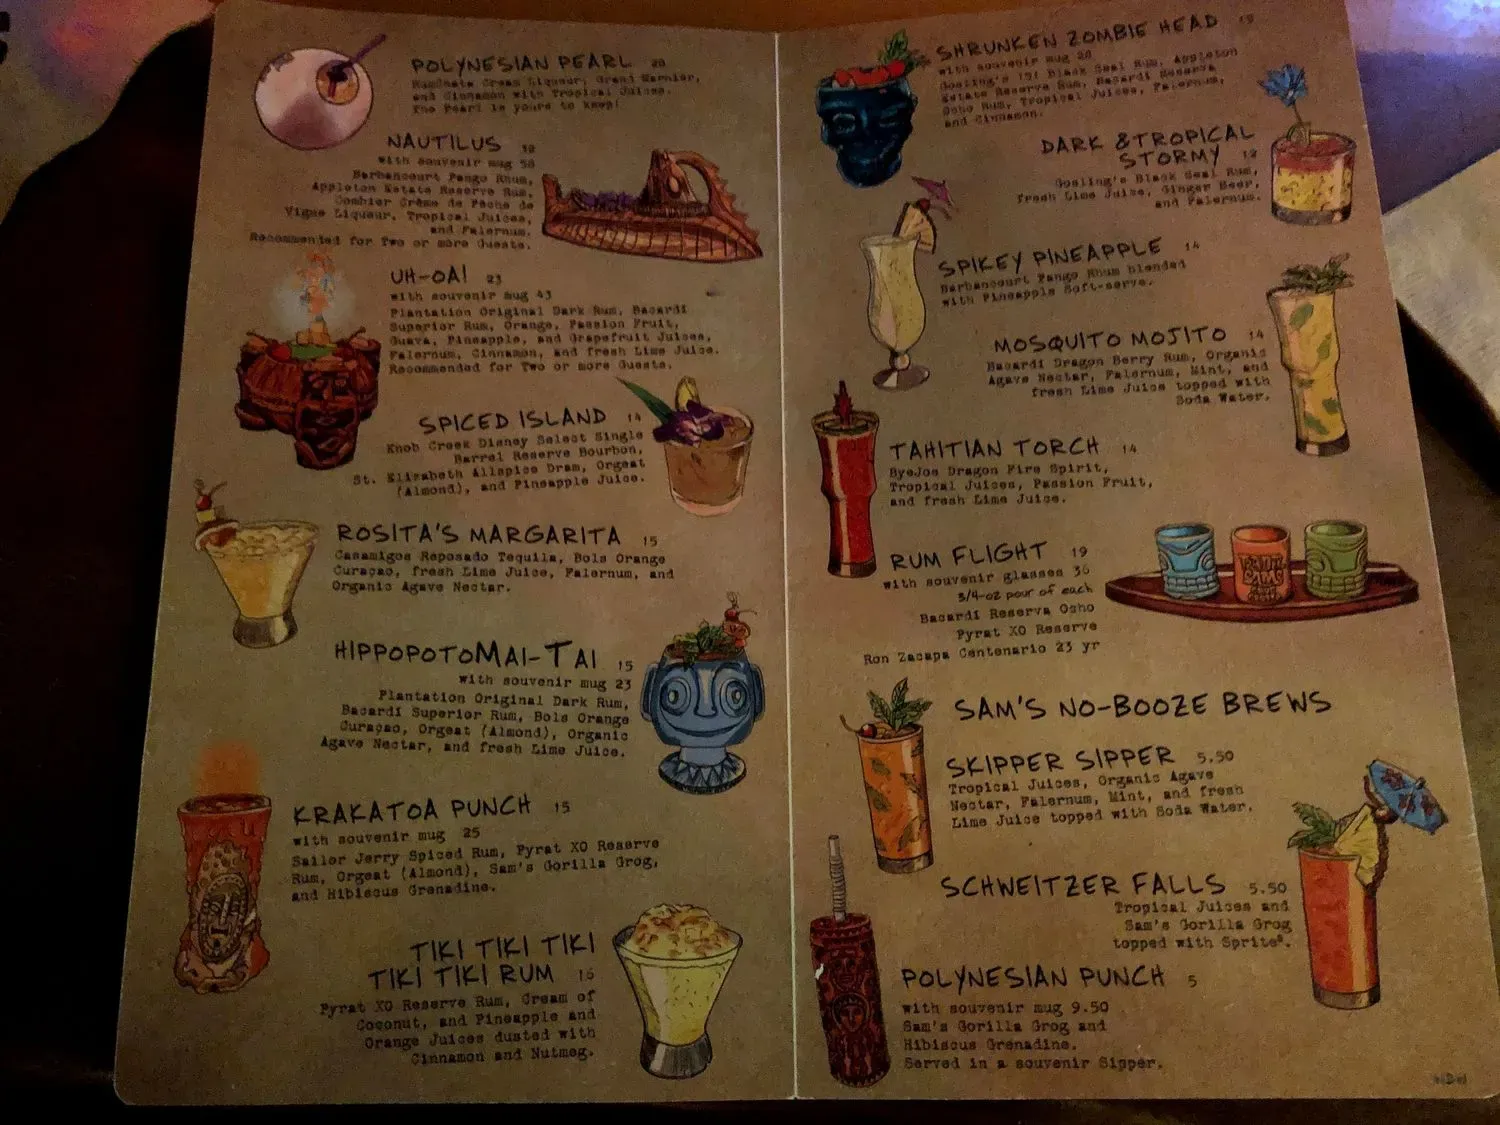 POLYNESIAN PEARL 20
RumChata Cream Liqueur, Grand Marnier,
and Cinnamon with Tropical Juices.
The Pearl is yours to keep!
NAUTILUS
with souvenir mug 58
Barbancourt Pango Rhum,
Appleton Estate Reserve Rum,
Combier Crème de Pêche de
Vigne Liqueur, Tropical Juices,
and Falernum.
Recommended for Two or more Guests.
UH-OA! 23
with souvenir mug 43
Plantation Original Dark Rum, Bacardi
Superior Rum, Orange, Passion Fruit,
Guava, Pineapple, and Grapefruit Juices,
Falernum, Cinnamon, and fresh Lime Juice.
Recommended for Two or more Guests.
SPICED ISLAND 14
Knob Creek Disney Select Single
Barrel Reserve Bourbon,
St. Elizabeth Allspice Dram, Orgeat
(Almond), and Pineapple Juice.
ROSITA'S MARGARITA 15
Casamigos Reposado Tequila, Bols Orange
Curaçao, fresh Lime Juice, Falernum, and
Organic Agave Nectar.
HIPPOPOTOMAI-TAI 15
with souvenir mug 23
Plantation Original Dark Rum,
Bacardi Superior Rum, Bols Orange
Curaçao, Orgeat (Almond), Organic
Agave Nectar, and fresh Lime Juice.
KRAKATOA PUNCH 15
with souvenir mug 25
Sailor Jerry Spiced Rum, Pyrat XO Reserve
Rum, Orgeat (Almond), Sam's Gorilla Grog,
and Hibiscus Grenadine.
TIKI TIKI TIKI
TIKI TIKI RUM 16
Pyrat XO Reserve Rum, Cream of
Coconut, and Pineapple and
Orange Juices dusted with
Cinnamon and Nutmeg.
SHRUNKEN ZOMBIE HEAD
with souvenir mug 28
Gosling's 151 Black Seal Rum, Appleton
Estate Reserve Rum, Bacardi Reserva
Ocho Rum, Tropical Juices, Falernum,
and Cinnamon.
DARK & TROPICAL
STORMY
Gosling's Black Seal Rum,
fresh Lime Juice, Ginger Beer,
and Falernum.
SPIKEY PINEAPPLE 14
Barbancourt Pango Rhum blended
with Pineapple Soft-serve.
MOSQUITO MOJITO 14
Bacardi Dragon Berry Rum, Organic
Agave Nectar, Falernum, Mint, and
fresh Lime Juice topped with
Soda Water.
TAHITIAN TORCH 14
ByeJoe Dragon Fire Spirit,
Tropical Juices, Passion Fruit,
and fresh Lime Juice.
RUM FLIGHT 19
with souvenir glasses 36
3/4-oz pour of each
Bacardi Reserva Ocho
Pyrat XO Reserve
Ron Zacapa Centenario 23 yr
SAM'S NO-BOOZE BREWS
SKIPPER SIPPER 5.50
Tropical Juices, Organic Agave
Nectar, Falernum, Mint, and fresh
Lime Juice topped with Soda Water.
SCHWEITZER FALLS 5.50
Tropical Juices and
Sam's Gorilla Grog
topped with Sprite®.
POLYNESIAN PUNCH 5
with souvenir mug 9.50
Sam's Gorilla Grog and
Hibiscus Grenadine.
Served in a souvenir Sipper.